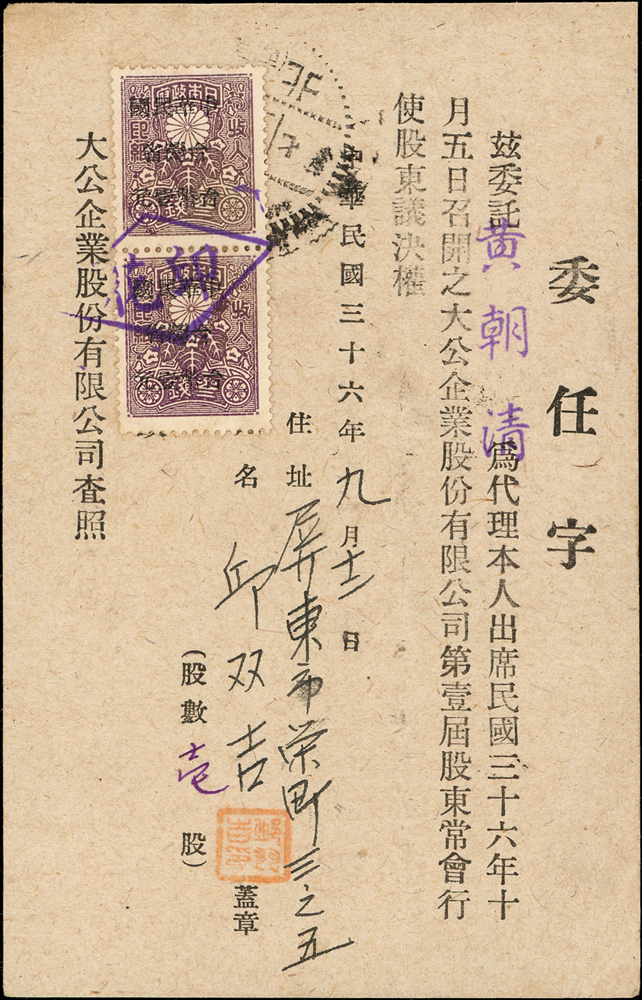 委任字
茲委託黄朝清為代理本人出席民國三十六年十
月五日召開之大公企業股份有限公司第壹屆股東常會行
使股東議決權
中華民國三十六年九月十二日
住址 屏東市栄町三之五
名 邱双吉 蓋章
(股數壱股)
大公企業股份有限公司查照
中華民國
台灣省
中華民國
台灣省